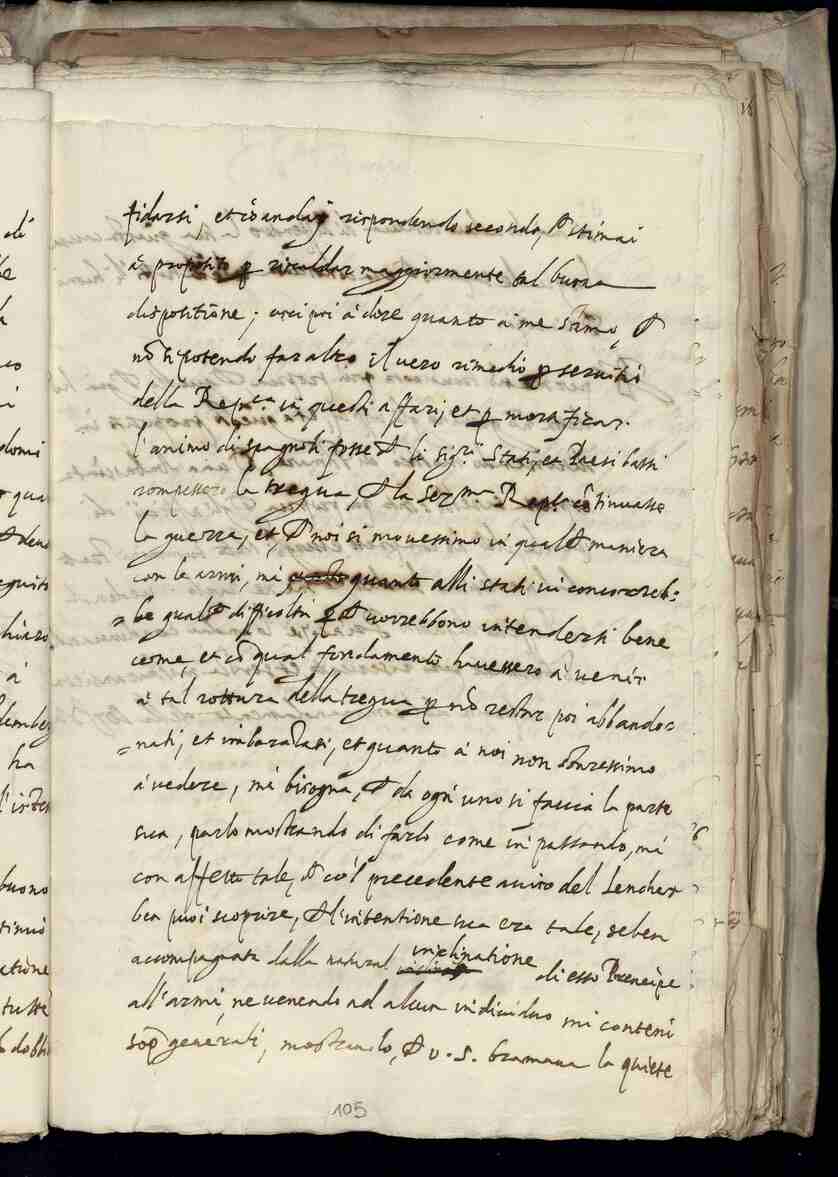 fidarsi, et io andai rispondendo secondo, che stimai
à proposito per riscaldar maggiormente tal buona
dispositione; uscì poi à dire quanto à me stimo, che
nõ si potendo far altro il vero rimedio per servitii
della Rep.ca in questi affari, et per mortificar
l'animo di spagnoli fosse che li sig.ri Stati, ea Paesi bassi
rompessero la tregua, che la Ser.ma Rep.ca cõtinuasse
la guerra, et, che noi si movessimo in qualche maniera
con le armi, mà quanto alli stati vi concorreb=
=be qualche difficoltà perche vorrebbono intendersi bene
come, et cõ qual fondamento havessero à venir
à tal rottura della tregua per nõ restar poi abbando=
=nati, et imbarazzati, et quanto à noi non
à vedere, mà bisogna, che da ogni uno si faccia la parte
sua, parlò mostrando di farlo come in passando, mà
con affetto tale, che co'l precedente aviso del Lencher
ben puoi scoprire, che l'intentione sua era tale, seben
accompagnata dalla natural inclinatione di esso Prencipe
all'armi, ne venendo ad alcun individuo mi conteni
sop.a generali, mostrando, che v. s. bramava la quiete
105